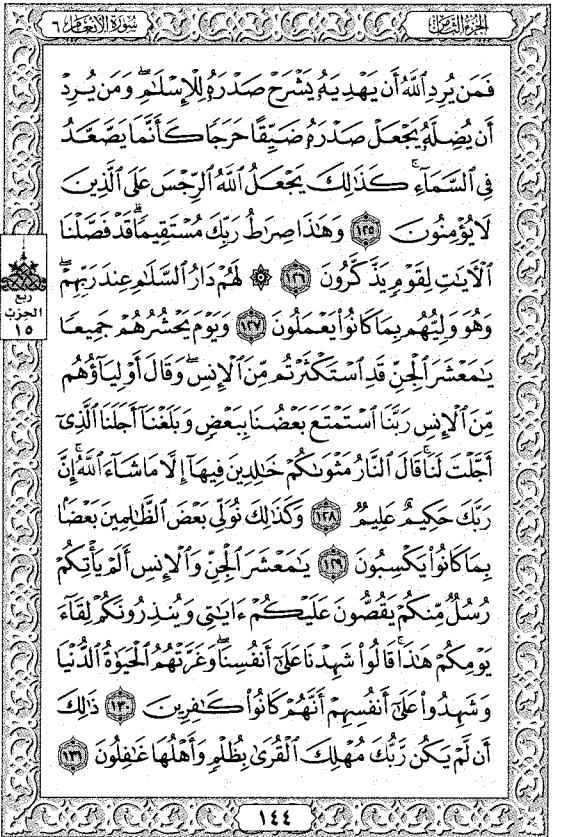 الجزء الثامن
سورة الأنعام ٦
فَمَن يُرِدِ ٱللَّهُ أَن يَهْدِيَهُۥ يَشْرَحْ صَدْرَهُۥ لِلْإِسْلَٰمِ ۖ وَمَن يُرِدْ
أَن يُضِلَّهُۥ يَجْعَلْ صَدْرَهُۥ ضَيِّقًا حَرَجًا كَأَنَّمَا يَصَّعَّدُ
فِى ٱلسَّمَآءِ ۚ كَذَٰلِكَ يَجْعَلُ ٱللَّهُ ٱلرِّجْسَ عَلَى ٱلَّذِينَ
لَا يُؤْمِنُونَ ١٢٥ وَهَٰذَا صِرَٰطُ رَبِّكَ مُسْتَقِيمًا ۗ قَدْ فَصَّلْنَا
ٱلْءَايَٰتِ لِقَوْمٍ يَذَّكَّرُونَ ١٢٦ ۞ لَهُمْ دَارُ ٱلسَّلَٰمِ عِندَ رَبِّهِمْ ۖ
وَهُوَ وَلِيُّهُم بِمَا كَانُوا۟ يَعْمَلُونَ ١٢٧ وَيَوْمَ يَحْشُرُهُمْ جَمِيعًا
يَٰمَعْشَرَ ٱلْجِنِّ قَدِ ٱسْتَكْثَرْتُم مِّنَ ٱلْإِنسِ ۖ وَقَالَ أَوْلِيَآؤُهُم
مِّنَ ٱلْإِنسِ رَبَّنَا ٱسْتَمْتَعَ بَعْضُنَا بِبَعْضٍ وَبَلَغْنَآ أَجَلَنَا ٱلَّذِىٓ
أَجَّلْتَ لَنَا ۚ قَالَ ٱلنَّارُ مَثْوَىٰكُمْ خَٰلِدِينَ فِيهَآ إِلَّا مَا شَآءَ ٱللَّهُ ۗ إِنَّ
رَبَّكَ حَكِيمٌ عَلِيمٌ ١٢٨ وَكَذَٰلِكَ نُوَلِّى بَعْضَ ٱلظَّٰلِمِينَ بَعْضًۢا
بِمَا كَانُوا۟ يَكْسِبُونَ ١٢٩ يَٰمَعْشَرَ ٱلْجِنِّ وَٱلْإِنسِ أَلَمْ يَأْتِكُمْ
رُسُلٌ مِّنكُمْ يَقُصُّونَ عَلَيْكُمْ ءَايَٰتِى وَيُنذِرُونَكُمْ لِقَآءَ
يَوْمِكُمْ هَٰذَا ۚ قَالُوا۟ شَهِدْنَا عَلَىٰٓ أَنفُسِنَا ۖ وَغَرَّتْهُمُ ٱلْحَيَوٰةُ ٱلدُّنْيَا
وَشَهِدُوا۟ عَلَىٰٓ أَنفُسِهِمْ أَنَّهُمْ كَانُوا۟ كَٰفِرِينَ ١٣٠ ذَٰلِكَ
أَن لَّمْ يَكُن رَّبُّكَ مُهْلِكَ ٱلْقُرَىٰ بِظُلْمٍ وَأَهْلُهَا غَٰفِلُونَ ١٣١
ربع
الحزب
١٥
١٤٤